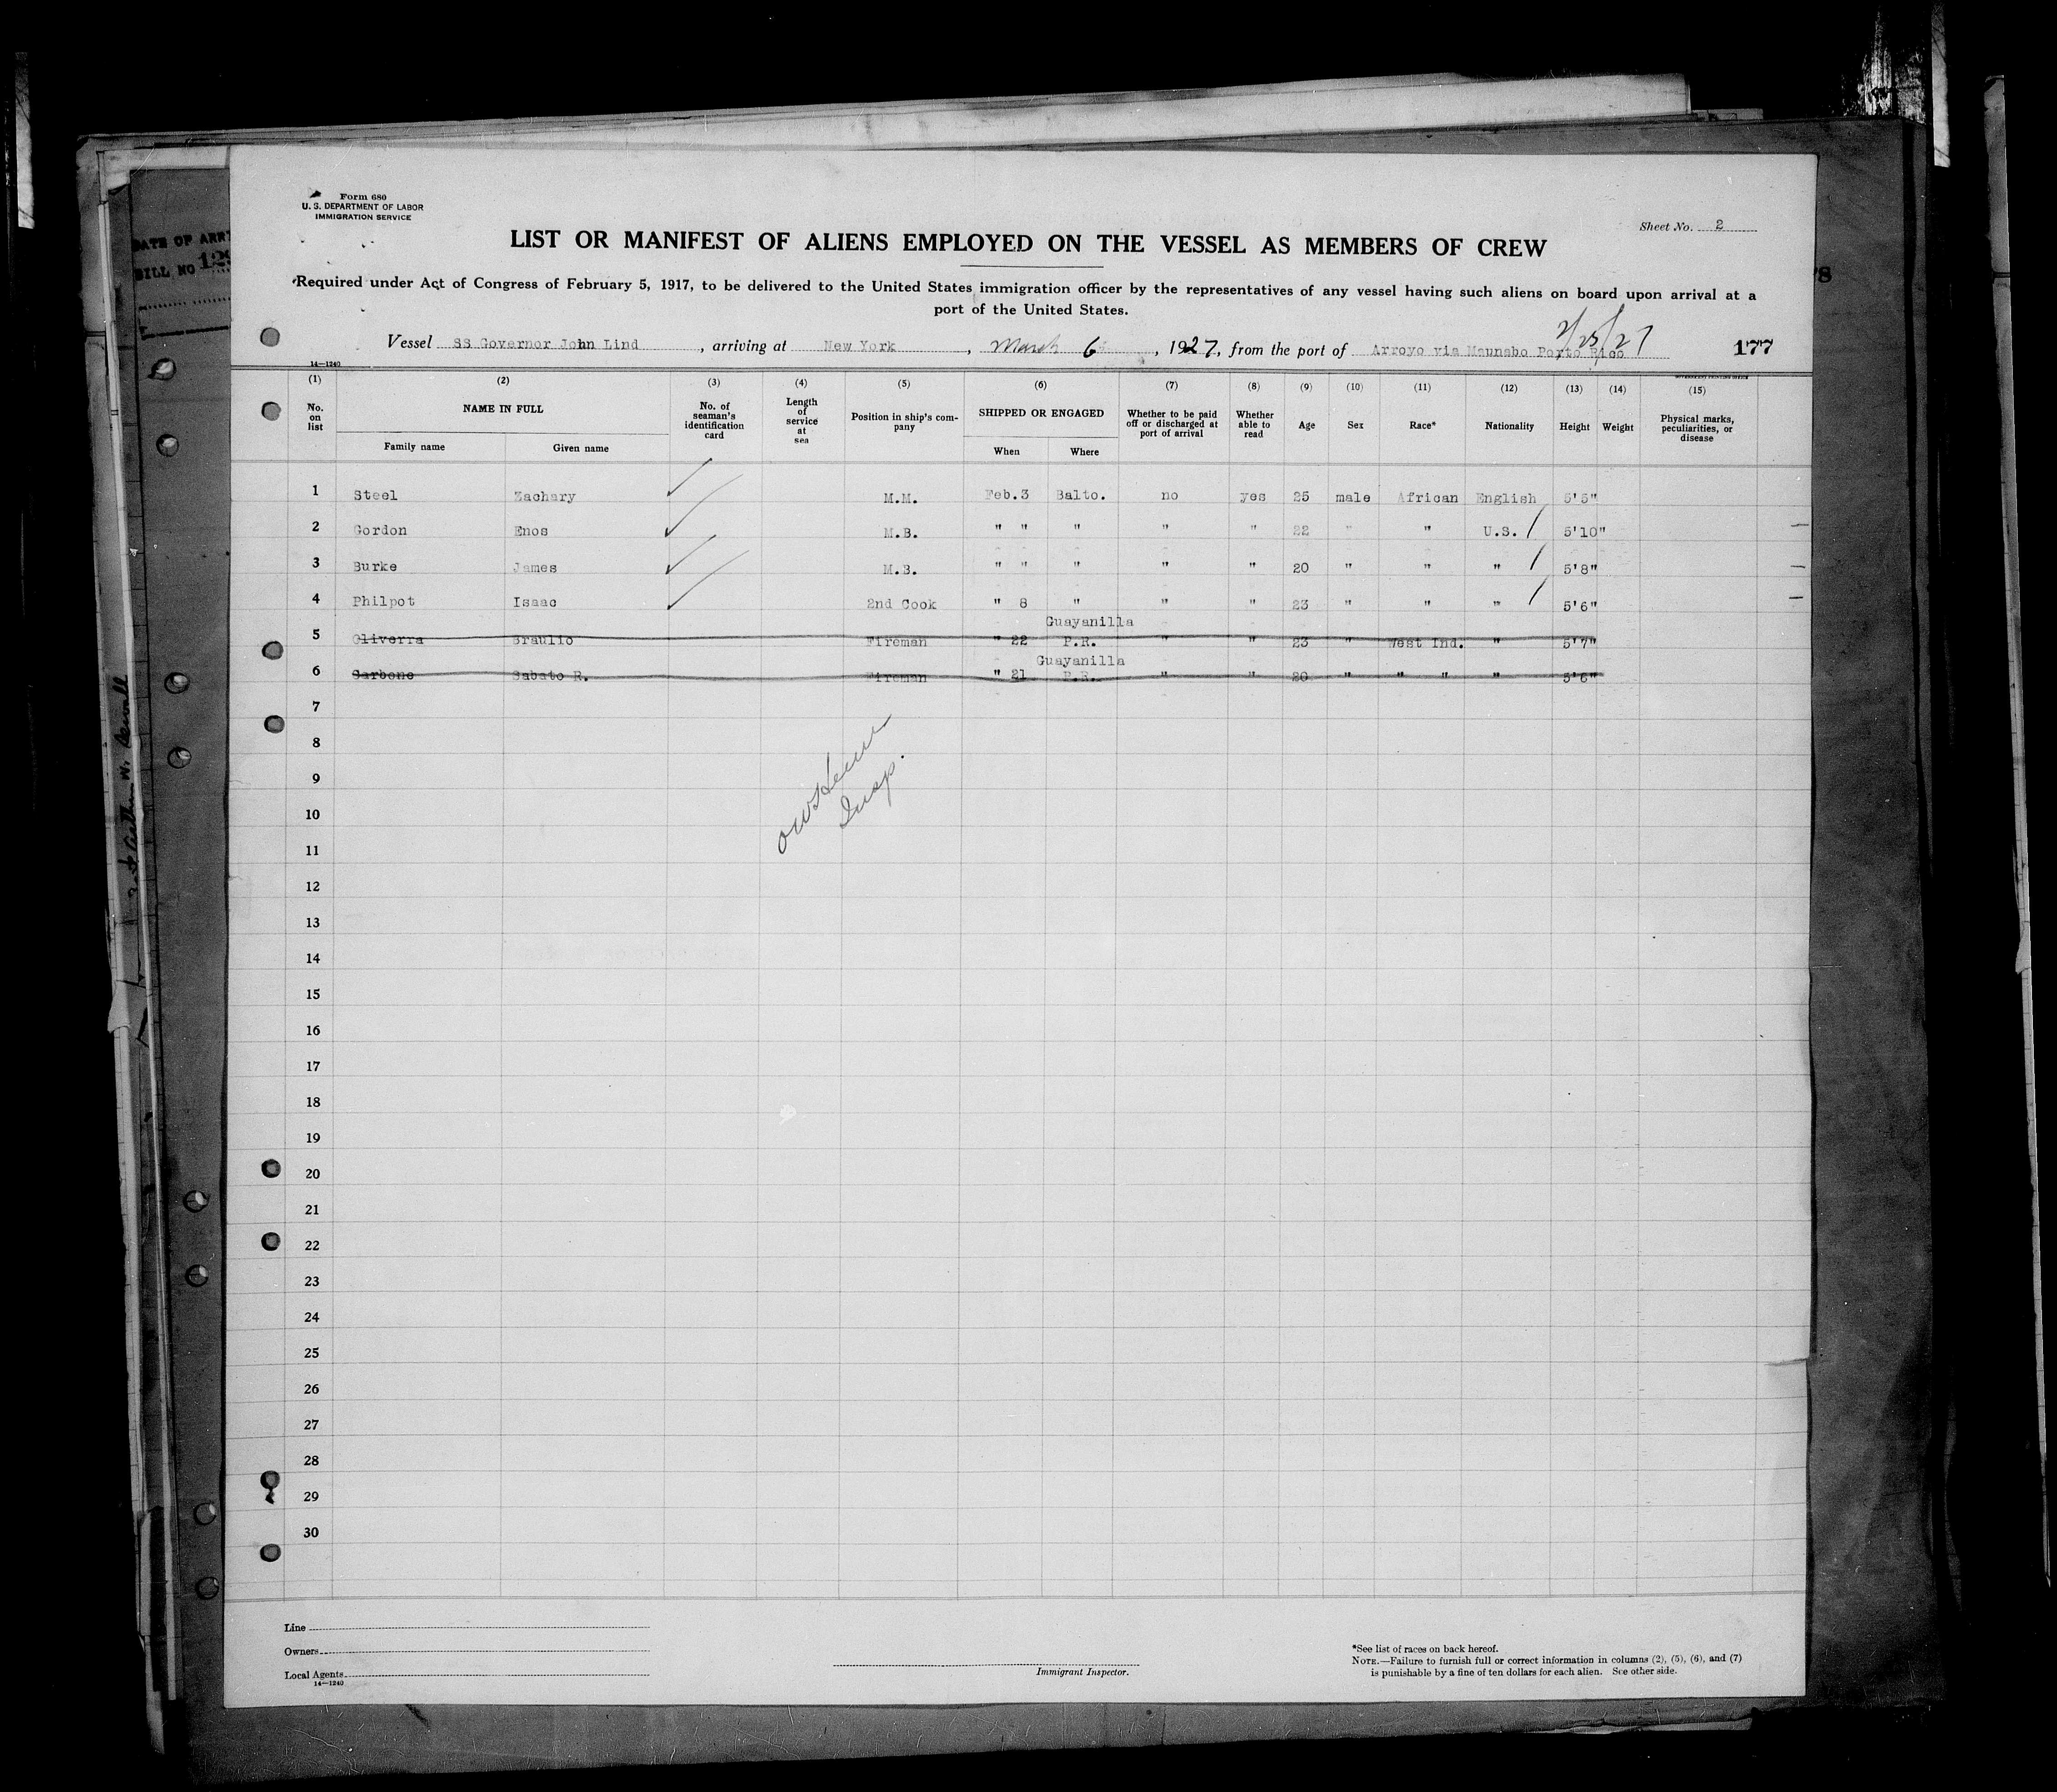 Form 680
U. S. DEPARTMENT OF LABOR
IMMIGRATION SERVICE
Sheet No. 2
LIST OR MANIFEST OF ALIENS EMPLOYED ON THE VESSEL AS MEMBERS OF CREW
Required under Act of Congress of February 5, 1917, to be delivered to the United States immigration officer by the representatives of any vessel having such aliens on board upon arrival at a
port of the United States.
2/25/27
Vessel SS Governor John Lind, arriving at New York, March 6, 1927, from the port of Arroyo via Maunabo Porto Rico 177
14—1240
(1) (2) (3) (4) (5) (6) (7) (8) (9) (10) (11) (12) (13) (14) (15)
No. on list NAME IN FULL No. of seaman's identification card Length of service at sea Position in ship's company SHIPPED OR ENGAGED Whether to be paid off or discharged at port of arrival Whether able to read Age Sex Race* Nationality Height Weight Physical marks, peculiarities, or disease
Family name Given name When Where
1 Steel Zachary M.M. Feb.3 Balto. no yes 25 male African English 5'5"
2 Gordon Enos M.B. " " " " " 22 " " U.S. / 5'10" —
3 Burke James M.B. " " " " " 20 " " " / 5'8" —
4 Philpot Isaac 2nd Cook " 8 " " " 23 " " " / 5'6" —
Guayanilla
5 Oliverra Braulio Fireman " 22 P.R. " " 23 " West Ind. " 5'7"
Guayanilla
6 Carbone Sabato R. Fireman " 21 P.R. " " 20 " " " " 5'6"
7
8
9
10
Insp.
11
12
13
14
15
16
17
18
19
20
21
22
23
24
25
26
27
28
29
30
Line
Owners
Local Agents
14—1240
Immigrant Inspector.
*See list of races on back hereof.
NOTE.—Failure to furnish full or correct information in columns (2), (5), (6), and (7)
is punishable by a fine of ten dollars for each alien. See other side.
DATE OF ARR
BILL NO 129